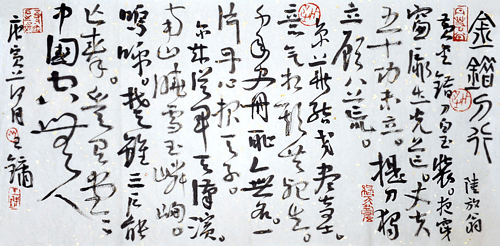 金錯刀行
陸放翁
黃金錯刀白玉裝。夜穿
窗扉出光芒。丈夫
五十功未立。提刀獨
立顧八荒。
京華結交盡奇士。
意氣相期共生死。
千年史冊恥無名。一
片丹心報天子。
爾來從軍天漢濱。
南山曉雪玉嶙峋。
嗚呼。楚雖三戶能
亡秦。豈有堂堂
中國空無人
庚寅 月 王鏞